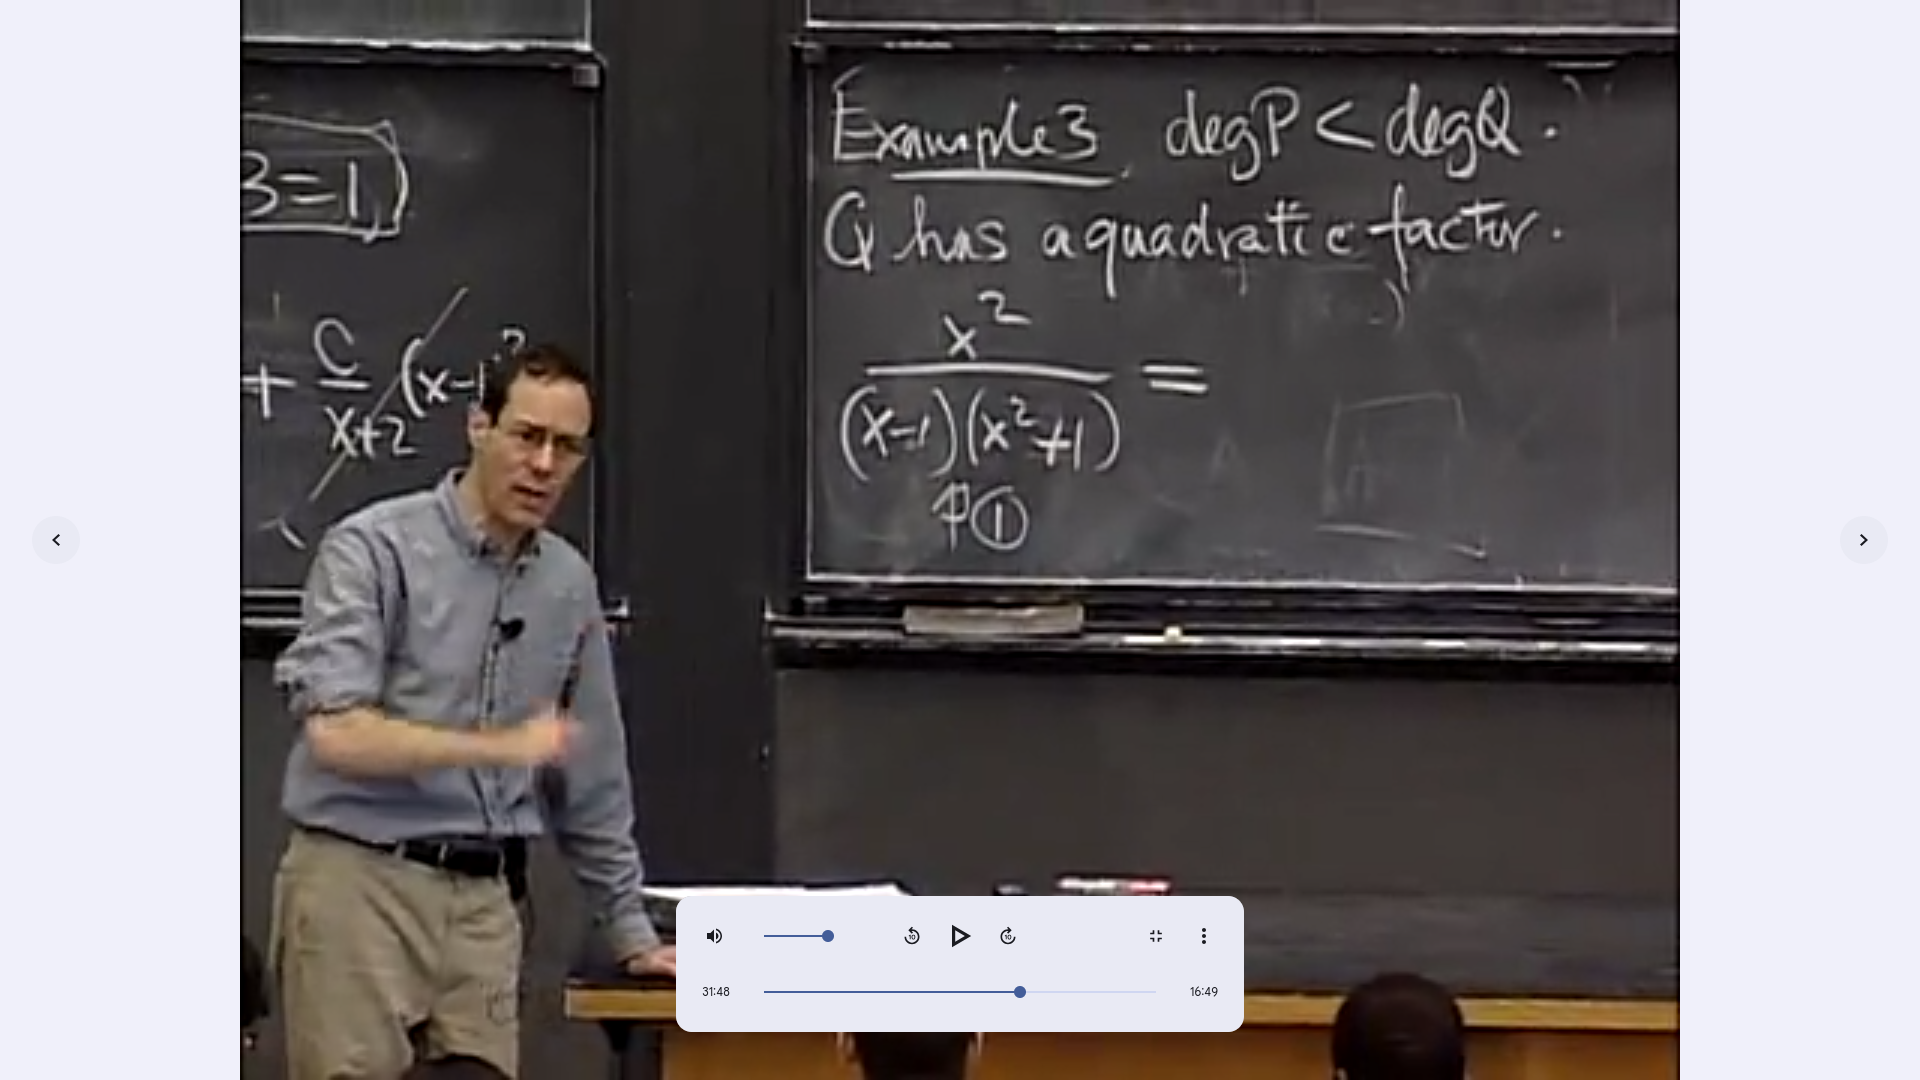 3=1,)
+ C/(x+2) (x-1)²
Example 3. deg P < deg Q.
Q has a quadratic factor.
x²/((x-1)(x²+1)) =
↑①
31:48
16:49